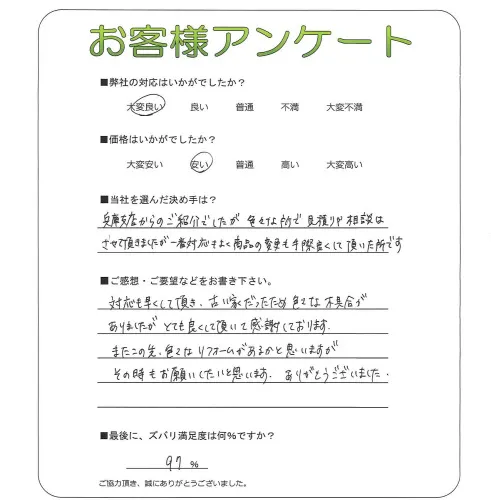 お客様アンケート
■弊社の対応はいかがでしたか？
大変良い 良い 普通 不満 大変不満
■価格はいかがでしたか？
大変安い 安い 普通 高い 大変高い
■当社を選んだ決め手は？
兵庫支店からのご紹介でしたが 色々な所で見積りや相談は
させて頂きましたが一番対応もよく商品の変更も手際良くして頂いた所です
■ご感想・ご要望などをお書き下さい。
対応も早くして頂き、古い家だったため色々な不具合が
ありましたが とても良くして頂いて感謝しております。
またこの先、色々なリフォームがあるかと思いますが
その時もお願いしたいと思います。ありがとうございました。
■最後に、ズバリ満足度は何%ですか？
97 %
ご協力頂き、誠にありがとうございました。